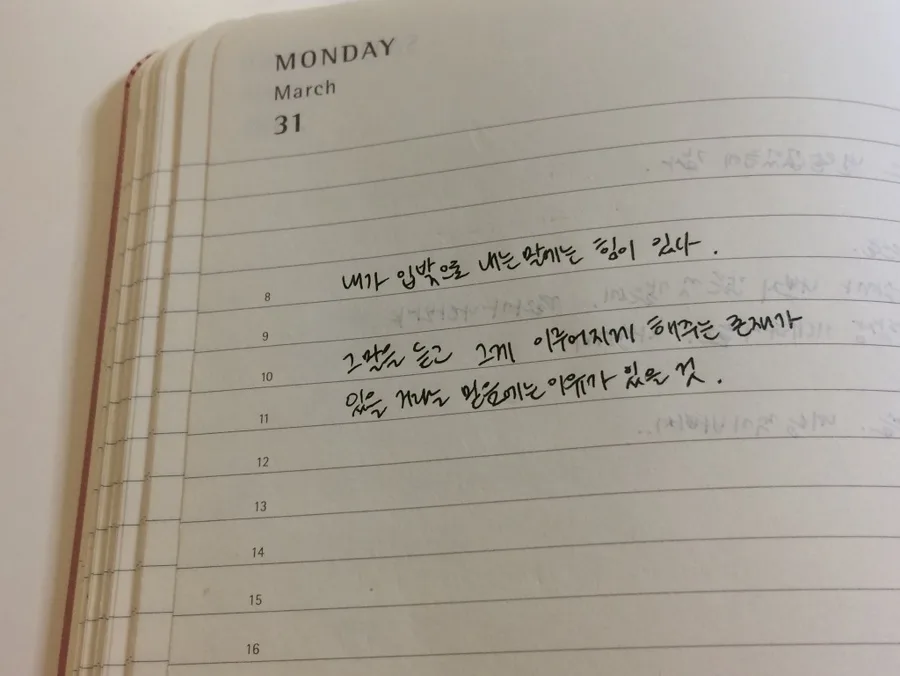 MONDAY
March
31
8
내가 입밖으로 내는 말에는 힘이 있다.
9
10
그말을 듣고 그게 이루어지게 해주는 존재가
11
있을 거라는 믿음에는 이유가 있을 것.
12
13
14
15
16